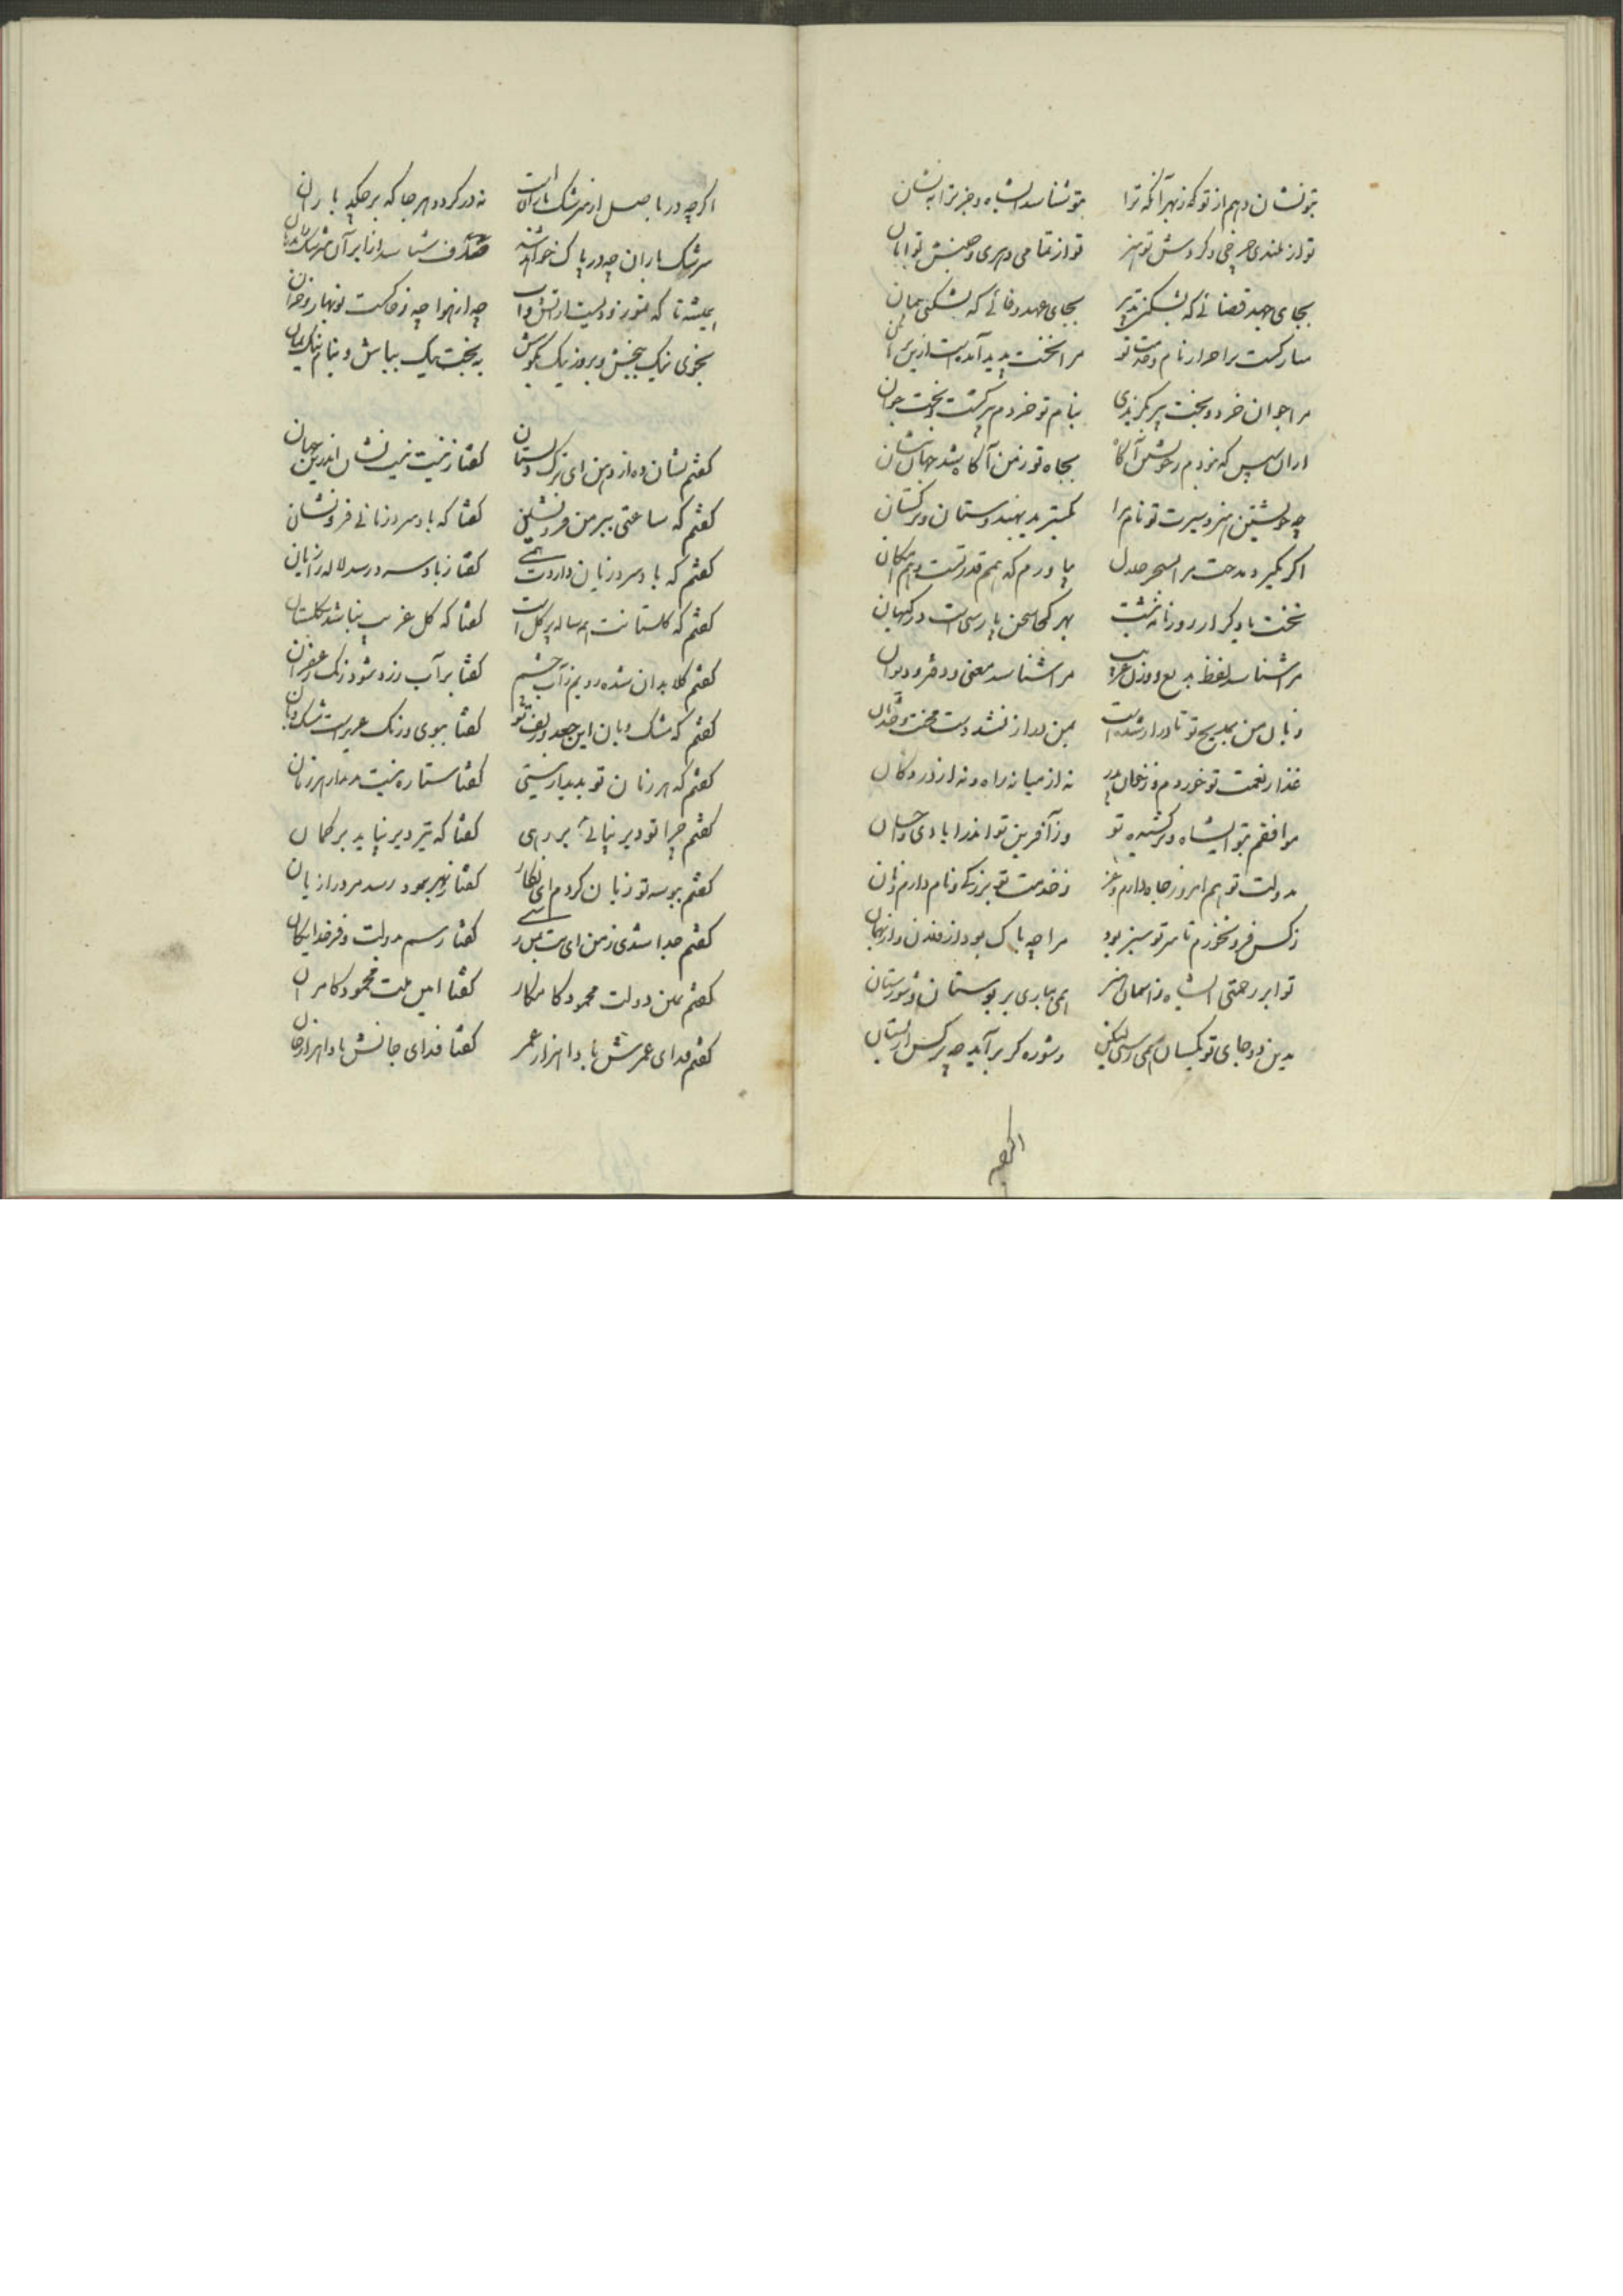 بتو نشان دهم از تو که زبهر آنکه ترا بتو شناسد ای شاه و جز ترا به نشان
تو از بلندی چرخی و گردش تو هنر تو از تمامی دهری و جنبش تو امان
بجای جهد قضائی که بشکنی تدبیر بجای عهد وفائی که نشکنی پیمان
مبارکست بر احرار نام و خدمت تو مرا نخست پدید آمدست ازین برهان
مرا جوان خرد و بخت پیر بگزیدی بنام تو خردم پیر گشت و بخت جوان
ازان سپس که نبودم ز خویشتن آگاه بجاه تو ز من آگاه شد جهان بنشان
چو خویشتن هنر و سیرت تو نام مرا بگسترید بهندوستان و ترکستان
اگر بگیرد مدحت مرا بسحر حلال بیاورم که همم قدرتست و هم امکان
نخست یاد کر از روزنامه نسبت بهر کجا سخن پارسی است در گیهان
مرا شناسد لفظ بدیع و وزن غریب مرا شناسد معنی و دفتر و دیوان
زبان من بمدیح تو تا دراز شده است بمن دراز نشد دست محنت و خذلان
غذا ز نعمت تو خوردم و ز خان پدر نه از میانه راه و نه از در دکان
موافقم بتو ای شاه و برکشیده تو وز آفرین تو اندر ایادی و احسان
بدولت تو هم امروز جاه دارم و عز ز خدمت تو بزرگی و نام دارم و نان
ز کس فرو نخورم تا سر تو سبز بود مرا چه باک بود از فلان و از بهمان
تو ابر رحمتی ای شاه ز آسمان هنر همی بباری بر بوستان و شورستان
بدین دو جای تو یکسان همی رسی لیکن ز شوره گرد برآید چه نرگس از بستان
اگرچه
اگرچه در باصل از سرشک باران است نه در گردد هر جا که برچکد باران
سرشک باران چه در پاک خواهد شد صدف شناسد از ابر آن سرشک را
همیشه تا که تنور زوالست از آتش و آب چه از هوا چه ز خاکست نوبهار و خزان
بخوی نیک ببخش و بروز نیک بکوش به بخت نیک بباش و بنام نیک بمان
گفتم نشان ده از دهن ای ترک دلستان گفتا ز نیست نیست نشان اندرین جهان
گفتم که ساعتی ببر من فرو نشین گفتا که باد سرد زمانی فرو نشان
گفتم که باد سرد زیان داردت همی گفتا ز باد سرد رسد لاله را زیان
گفتم که گلستانت همه ساله پر گل است گفتا که گل غریب نباشد بگلستان
گفتم گلابدان شده رویم ز آب چشم گفتا بر آب زرد شود رنگ زعفران
گفتم که مشک و بان این جعد و زلف تو گفتا ببوی و رنگ عزیز است مشک و بان
گفتم که هر زمان تو پدیدار نیستی گفتا ستاره نیست پدیدار هر زمان
گفتم چرا تو دیر نپائی بر رهی گفتا که تیر دیر نپاید بر کمان
گفتم ببوسه تو زیان کردم ای نگار گفتا ز بهر سود رسد مرد را زیان
گفتم جدا شدی ز من ای بت بس گفتا رسم بدولت و فر خدایگان
گفتم یمین دولت محمود کامگار گفتا امین ملت محمود کامران
گفتم فدای عمرش بادا هزار عمر گفتا فدای جانش بادا هزار جان